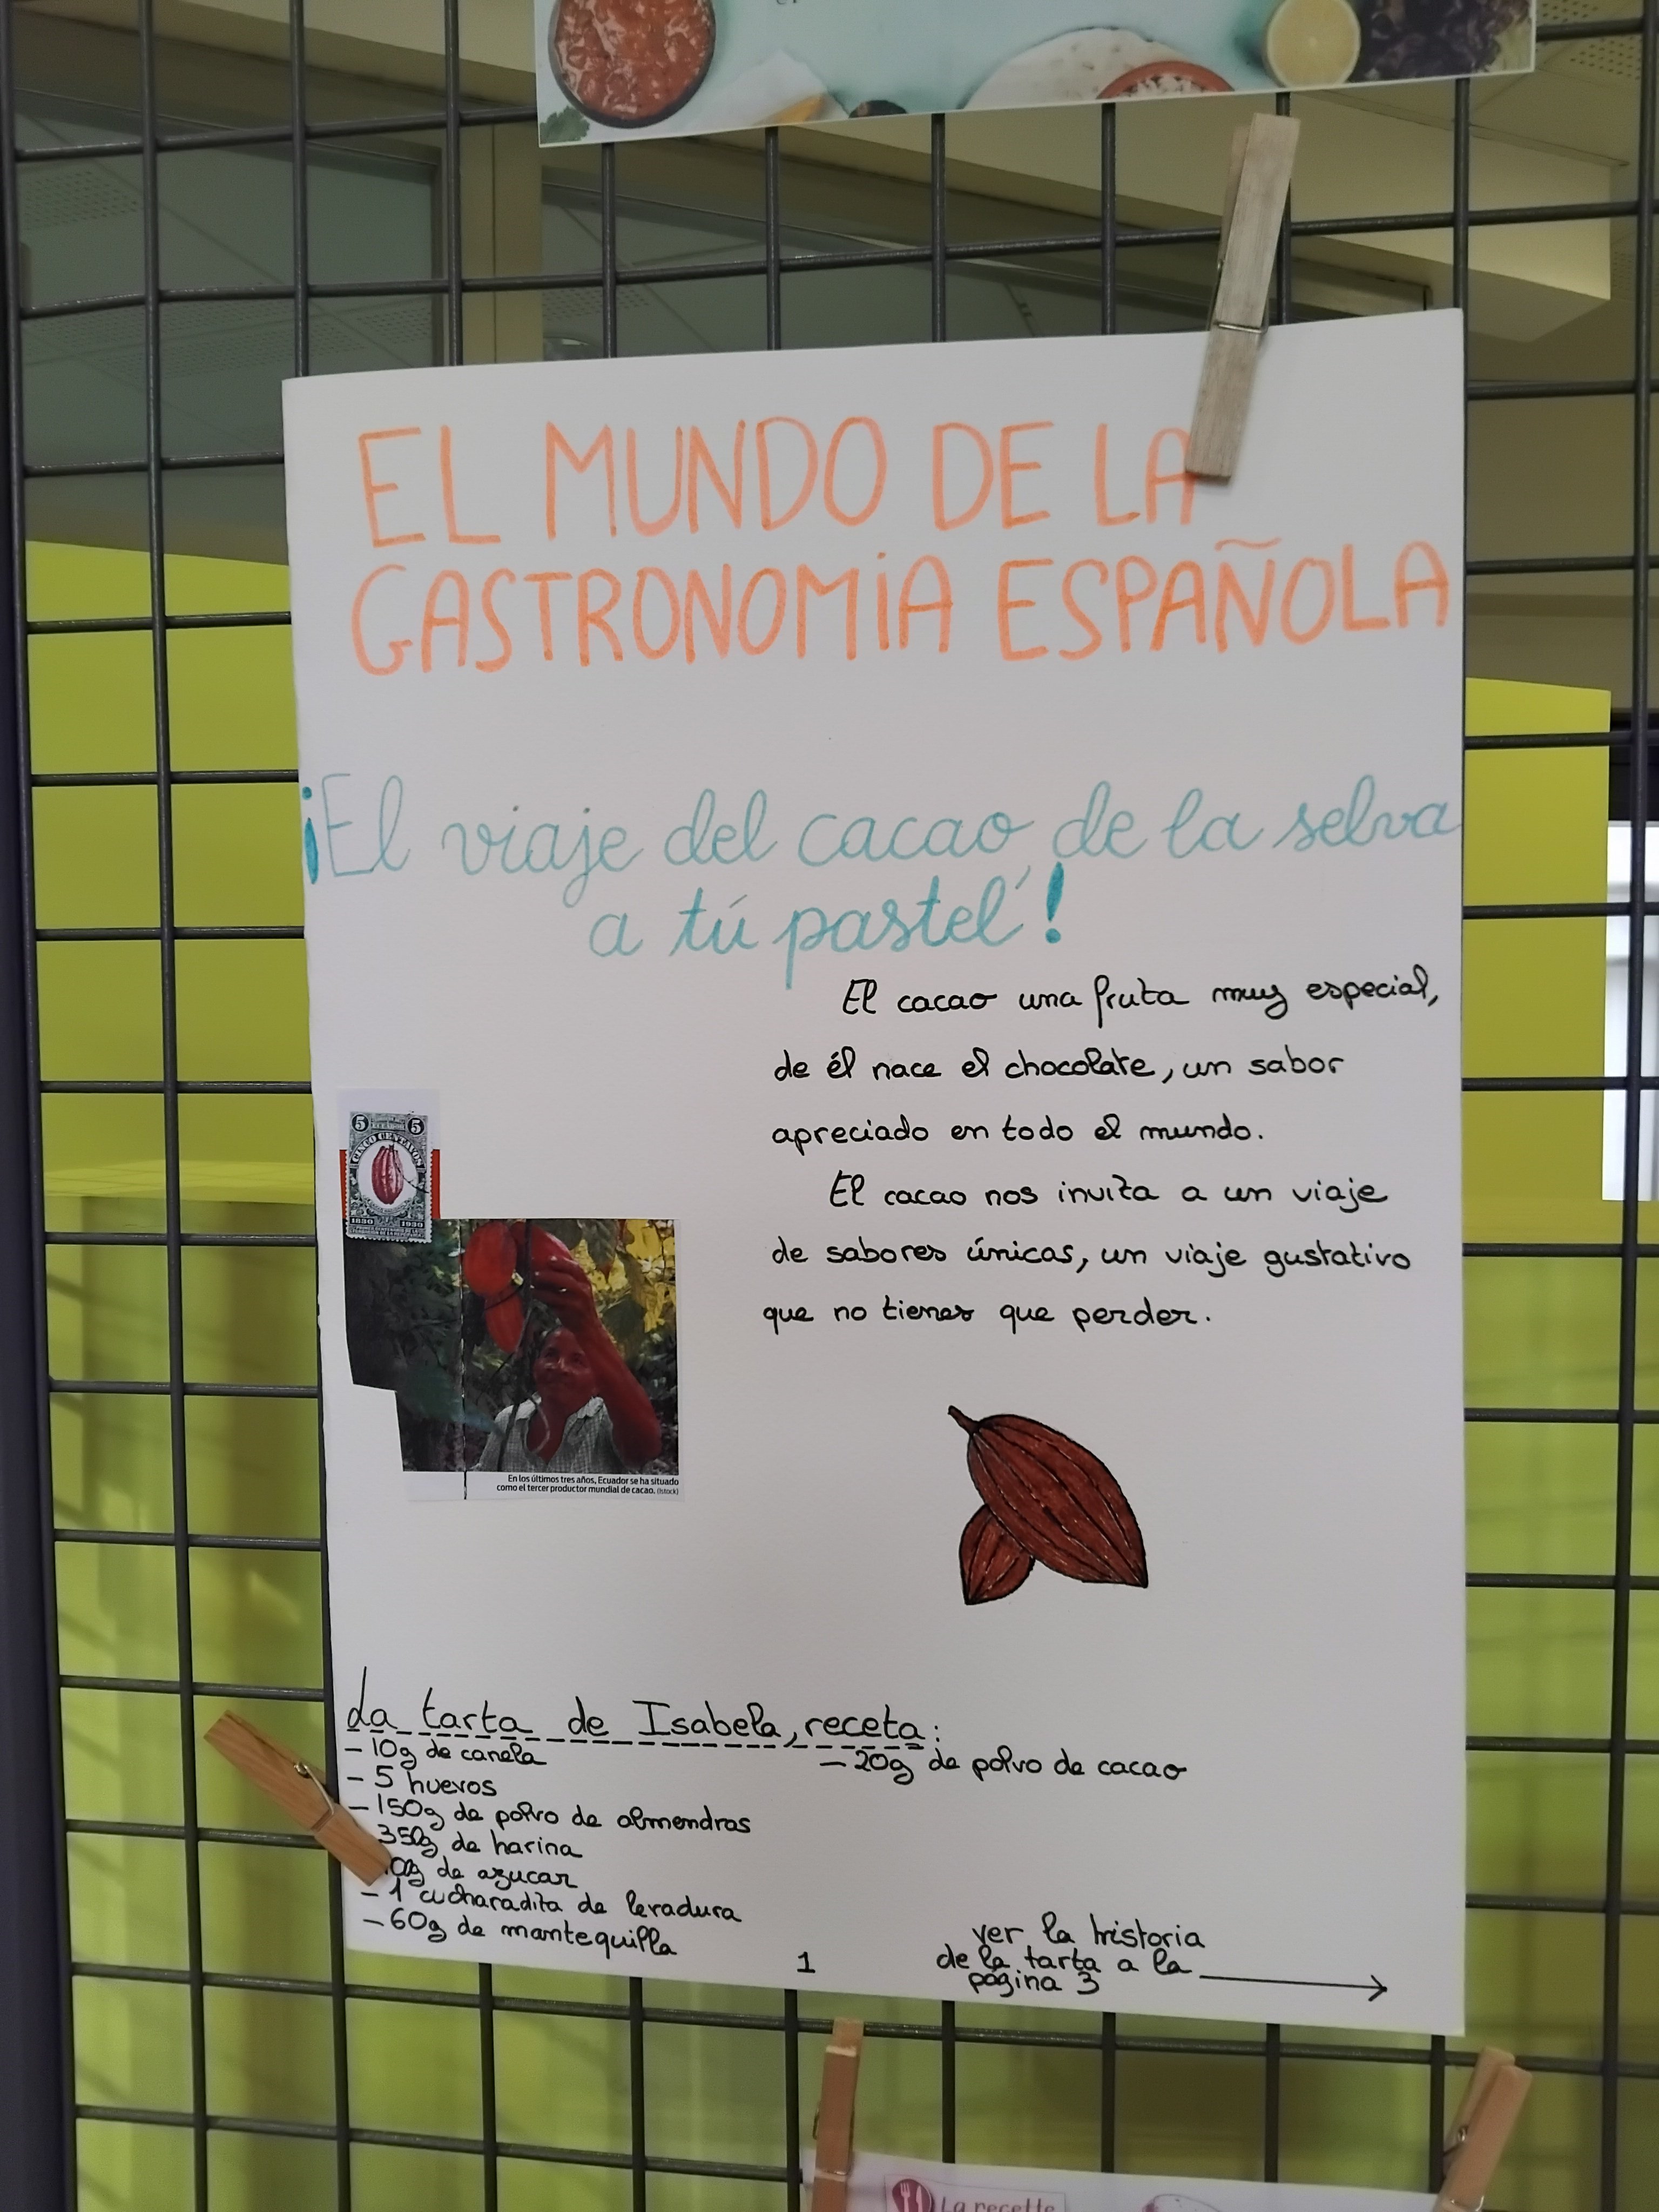 EL MUNDO DE LA
GASTRONOMÍA ESPAÑOLA
¡El viaje del cacao, de la selva
a tú pastel!
El cacao una fruta muy especial,
de él nace el chocolate, un sabor
apreciado en todo el mundo.
El cacao nos invita a un viaje
de sabores únicas, un viaje gustativo
que no tienes que perder.
5 5
CINCO CENTAVOS
1830 1930
En los últimos tres años, Ecuador se ha situado
como el tercer productor mundial de cacao. (Istock)
La tarta de Isabela, receta:
- 10g de canela
- 5 huevos
- 150g de polvo de almendras
350g de harina
0g de azucar
- 1 cucharadita de levadura
- 60g de mantequilla
- 20g de polvo de cacao
1
ver la historia
de la tarta a la
página 3
La recette